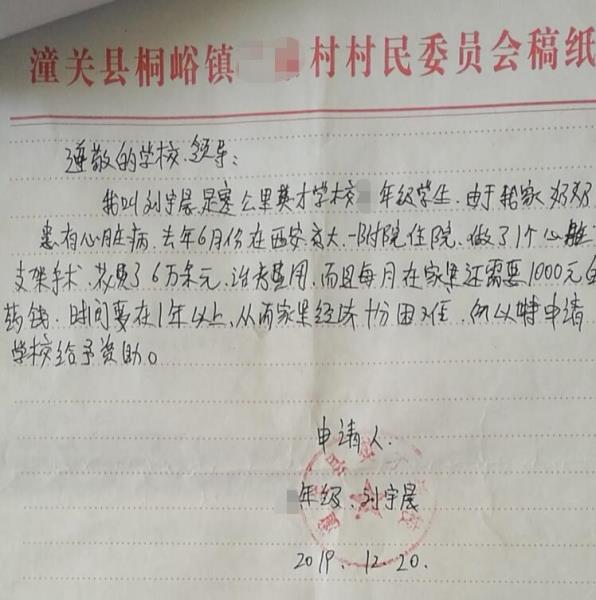 潼关县桐峪镇 村村民委员会稿纸
尊敬的学校领导:
我叫刘宇晨是寒公里英才学校 年级学生.由于我家奶奶
患有心脏病.去年6月份在西安交大一附院住院.做了1个心脏
支架手术.花费了6万余元.治疗费用.而且每月在家里还需要1000元的
药钱.时间要在1年以上,从而家里经济十分困难.所以特申请
学校给予资助。
申请人.
年级.刘宇晨
2019.12.20.